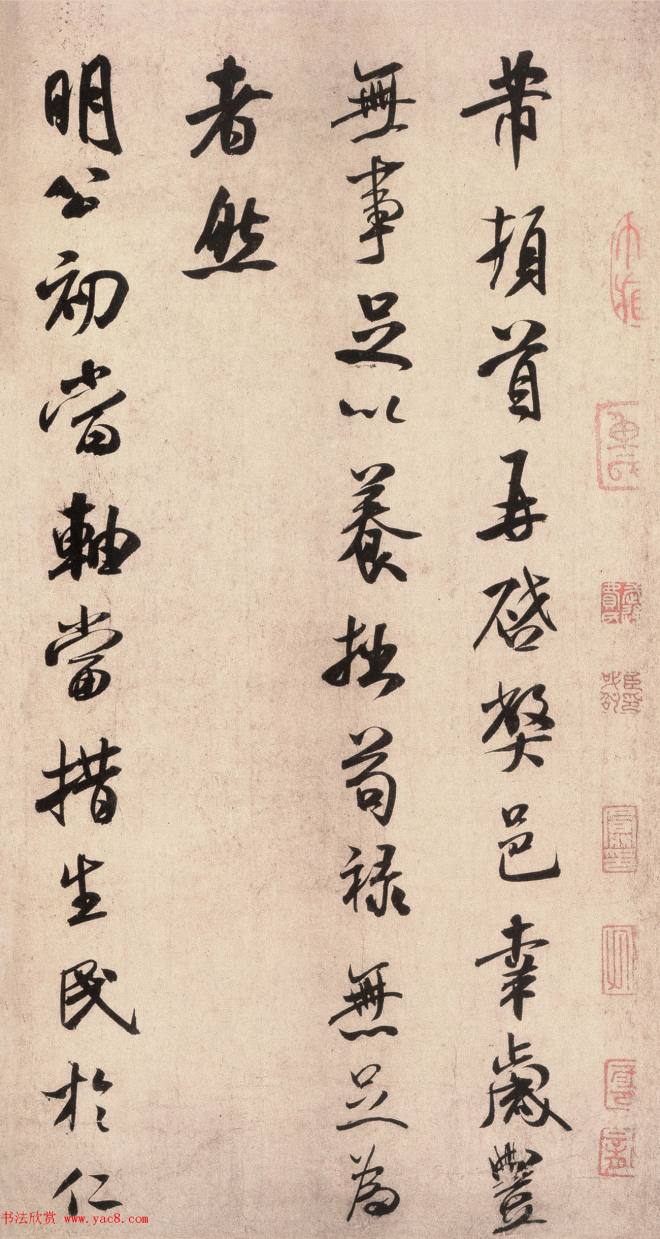 芾頓首再啓弊邑幸歲豐
無事足以養拙苟祿無足爲
者然
明公初當軸當措生民於仁
书法欣赏 www.yac8.com